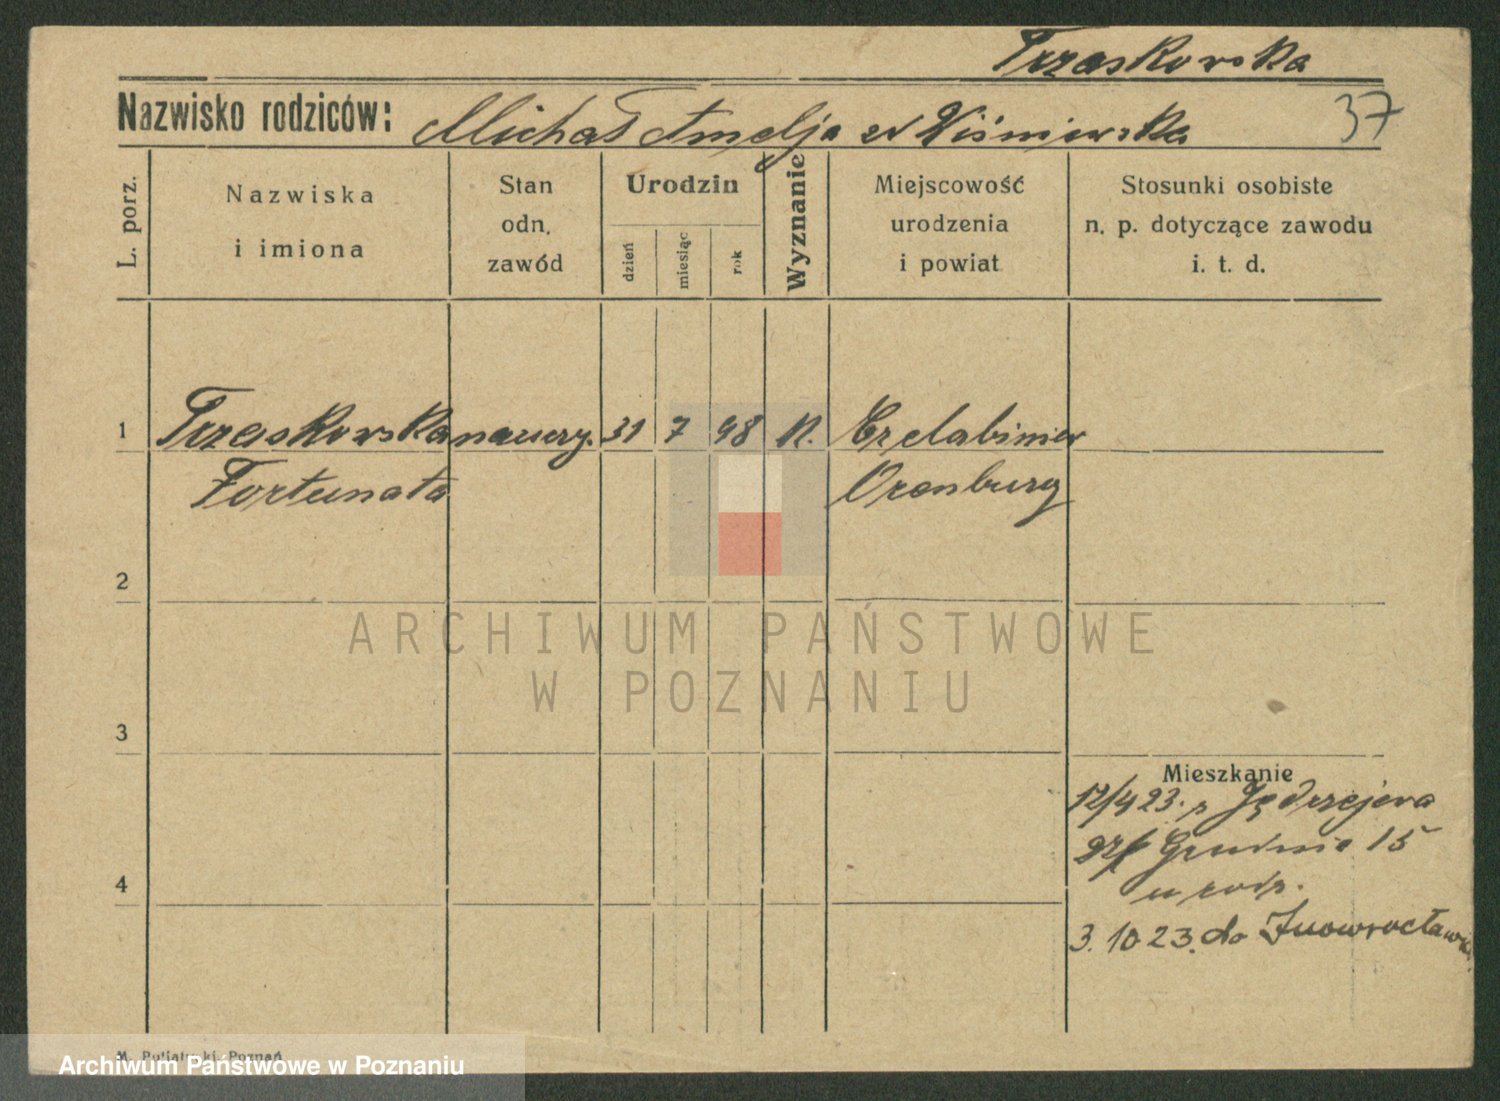 Trzaskowska
Nazwisko rodziców: Michał Amelja z Wiśniewska
37
L. porz.
Nazwiska
i imiona
Stan
odn.
zawód
Urodzin
dzień
miesiąc
rok
Wyznanie
Miejscowość
urodzenia
i powiat
Stosunki osobiste
n. p. dotyczące zawodu
i. t. d.
1 Trzaskowska naucz. 31 7 98 R. Czelabinsk
Fortunata Orenburg
2
3
4
Mieszkanie
12/4 23. z Jędrzejewa
Grudnia 15
u rodz.
3. 10 23. do Inowrocławia
ARCHIWUM PAŃSTWOWE
W POZNANIU
Poznań
Archiwum Państwowe w Poznaniu